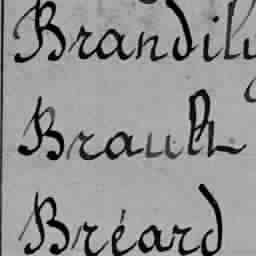 Brandily
Brault
Bréard